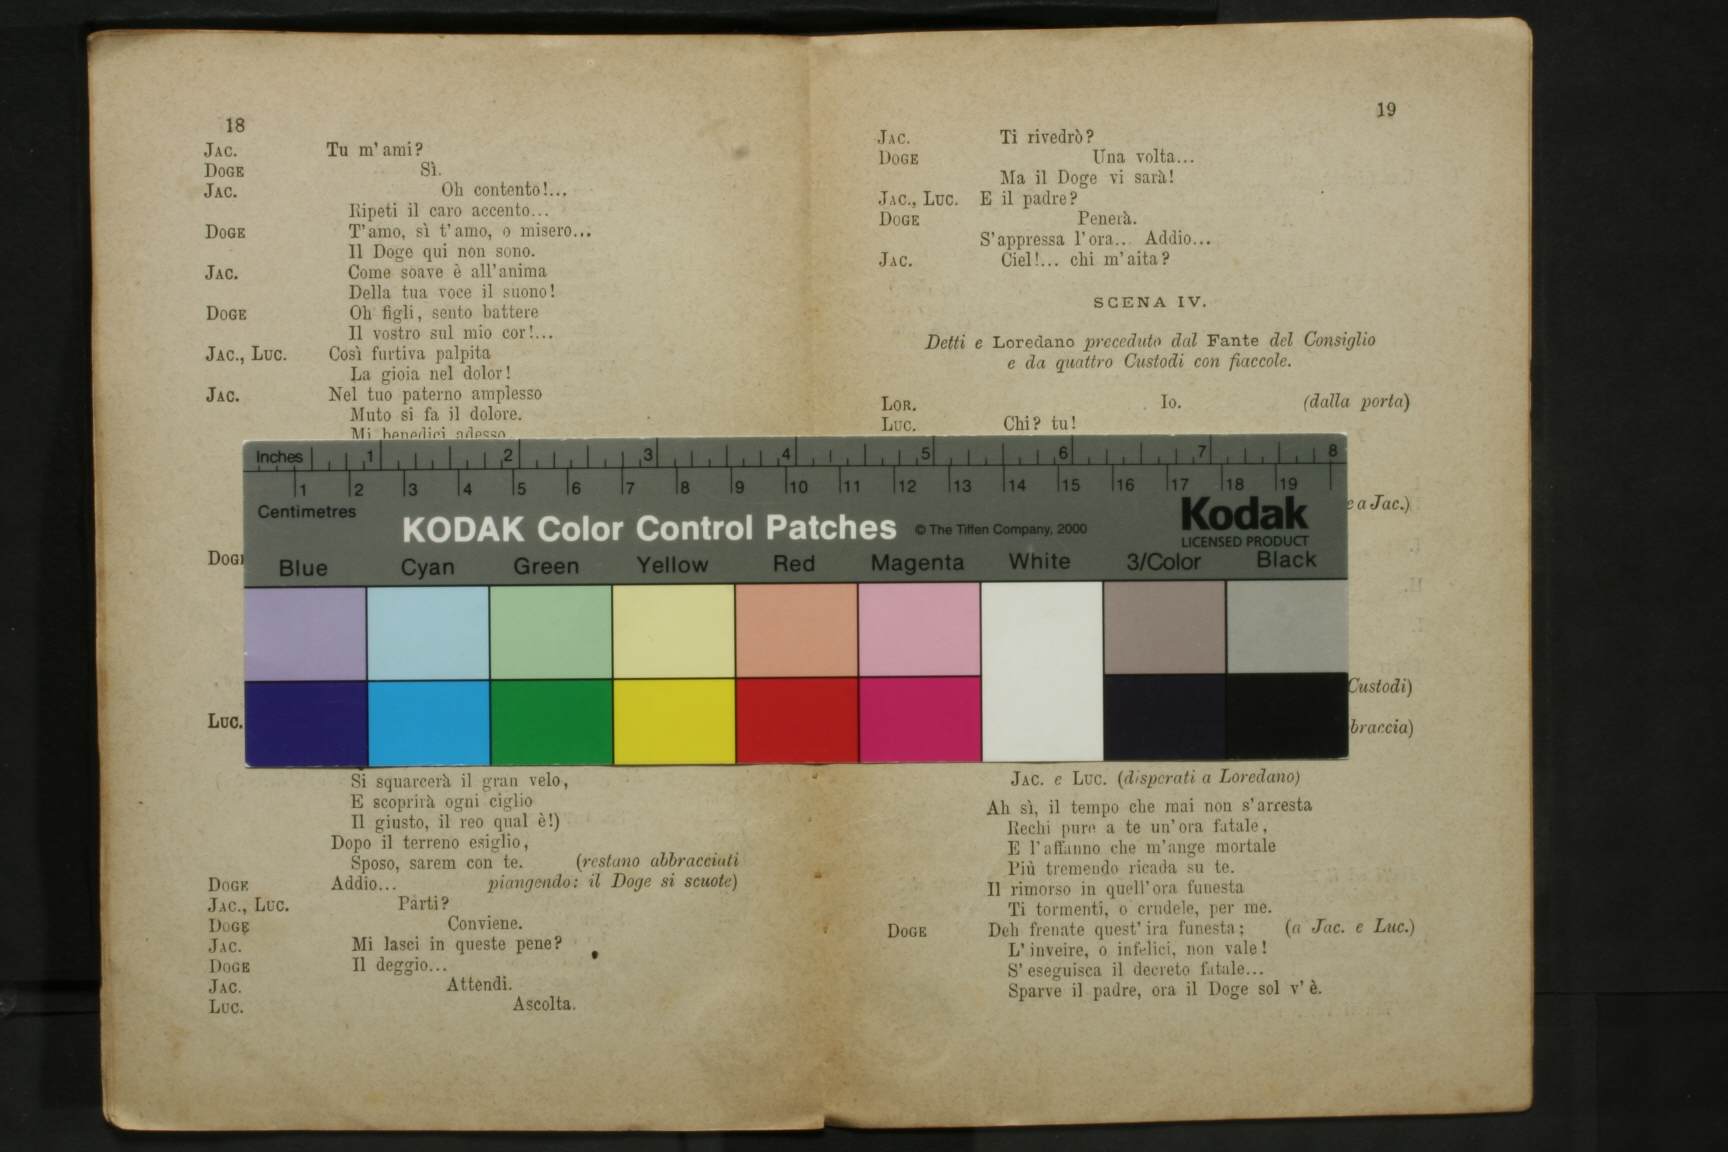 18
JAC. Tu m'ami?
DOGE Sì.
JAC. Oh contento!...
Ripeti il caro accento...
DOGE T'amo, sì t'amo, o misero...
Il Doge qui non sono.
JAC. Come soave è all'anima
Della tua voce il suono!
DOGE Oh figli, sento battere
Il vostro sul mio cor!...
JAC., LUC. Così furtiva palpita
La gioia nel dolor!
JAC. Nel tuo paterno amplesso
Muto si fa il dolore.
Mi benedici adesso
DOGE
LUC.
Si squarcerà il gran velo,
E scoprirà ogni ciglio
Il giusto, il reo qual è!)
Dopo il terreno esiglio,
Sposo, sarem con te. (restano abbracciati
DOGE Addio... piangendo: il Doge si scuote)
JAC., LUC. Parti?
DOGE Conviene.
JAC. Mi lasci in queste pene?
DOGE Il deggio...
JAC. Attendi.
LUC. Ascolta.
19
JAC. Ti rivedrò?
DOGE Una volta...
Ma il Doge vi sarà!
JAC., LUC. E il padre?
DOGE Penerà.
S'appressa l'ora... Addio...
JAC. Ciel!... chi m'aita?
SCENA IV.
Detti e Loredano preceduto dal Fante del Consiglio
e da quattro Custodi con fiaccole.
LOR. Io. (dalla porta)
LUC. Chi? tu!
e a Jac.)
Custodi)
braccia)
JAC. e LUC. (disperati a Loredano)
Ah sì, il tempo che mai non s'arresta
Rechi pure a te un'ora fatale,
E l'affanno che m'ange mortale
Più tremendo ricada su te.
Il rimorso in quell'ora funesta
Ti tormenti, o crudele, per me.
DOGE Deh frenate quest'ira funesta; (a Jac. e Luc.)
L'inveire, o infelici, non vale!
S'eseguisca il decreto fatale...
Sparve il padre, ora il Doge sol v'è.
Inches 1 2 3 4 5 6 7 8
1 2 3 4 5 6 7 8 9 10 11 12 13 14 15 16 17 18 19
Centimetres
KODAK Color Control Patches © The Tiffen Company, 2000 Kodak
LICENSED PRODUCT
Blue Cyan Green Yellow Red Magenta White 3/Color Black